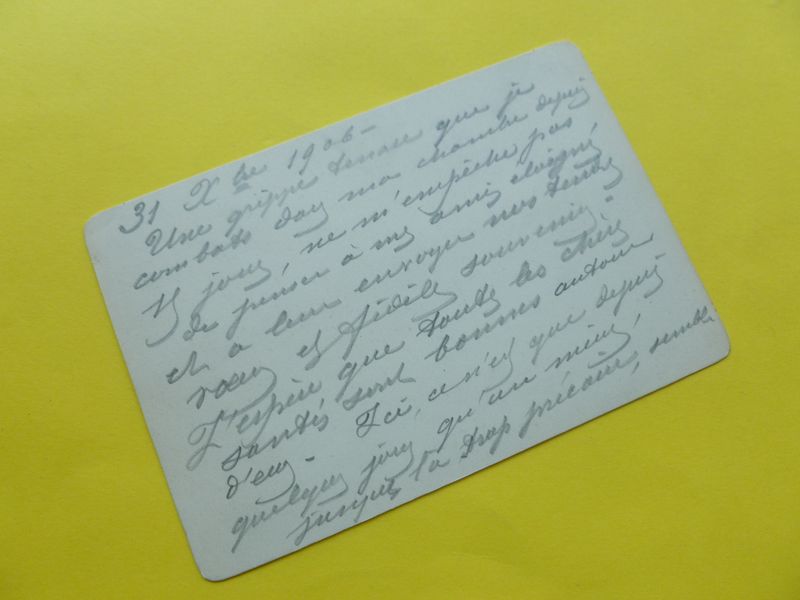 31 Xbre 1906 -
Une grippe tenace que je
combats dans ma chambre depuis
jours, ne m'empêche pas
de penser à mes amis éloignés
et à leur envoyer mes tendres
vœux et fidèle souvenir -
J'espère que toutes les chères
santés sont bonnes autour
d'eux - Ici, ce n'est que depuis
quelques jours qu'un mieux,
jusque là trop précaire, semble